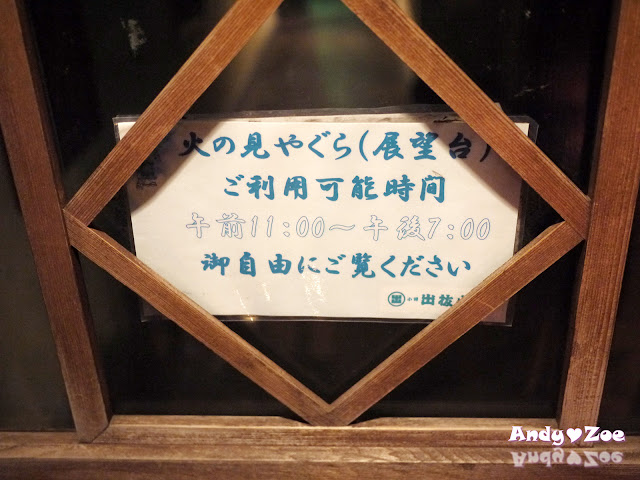 火の見やぐら(展望台)
ご利用可能時間
午前11:00〜午後7:00
御自由にご覧ください
小樽 出抜小
Andy♥Zoe